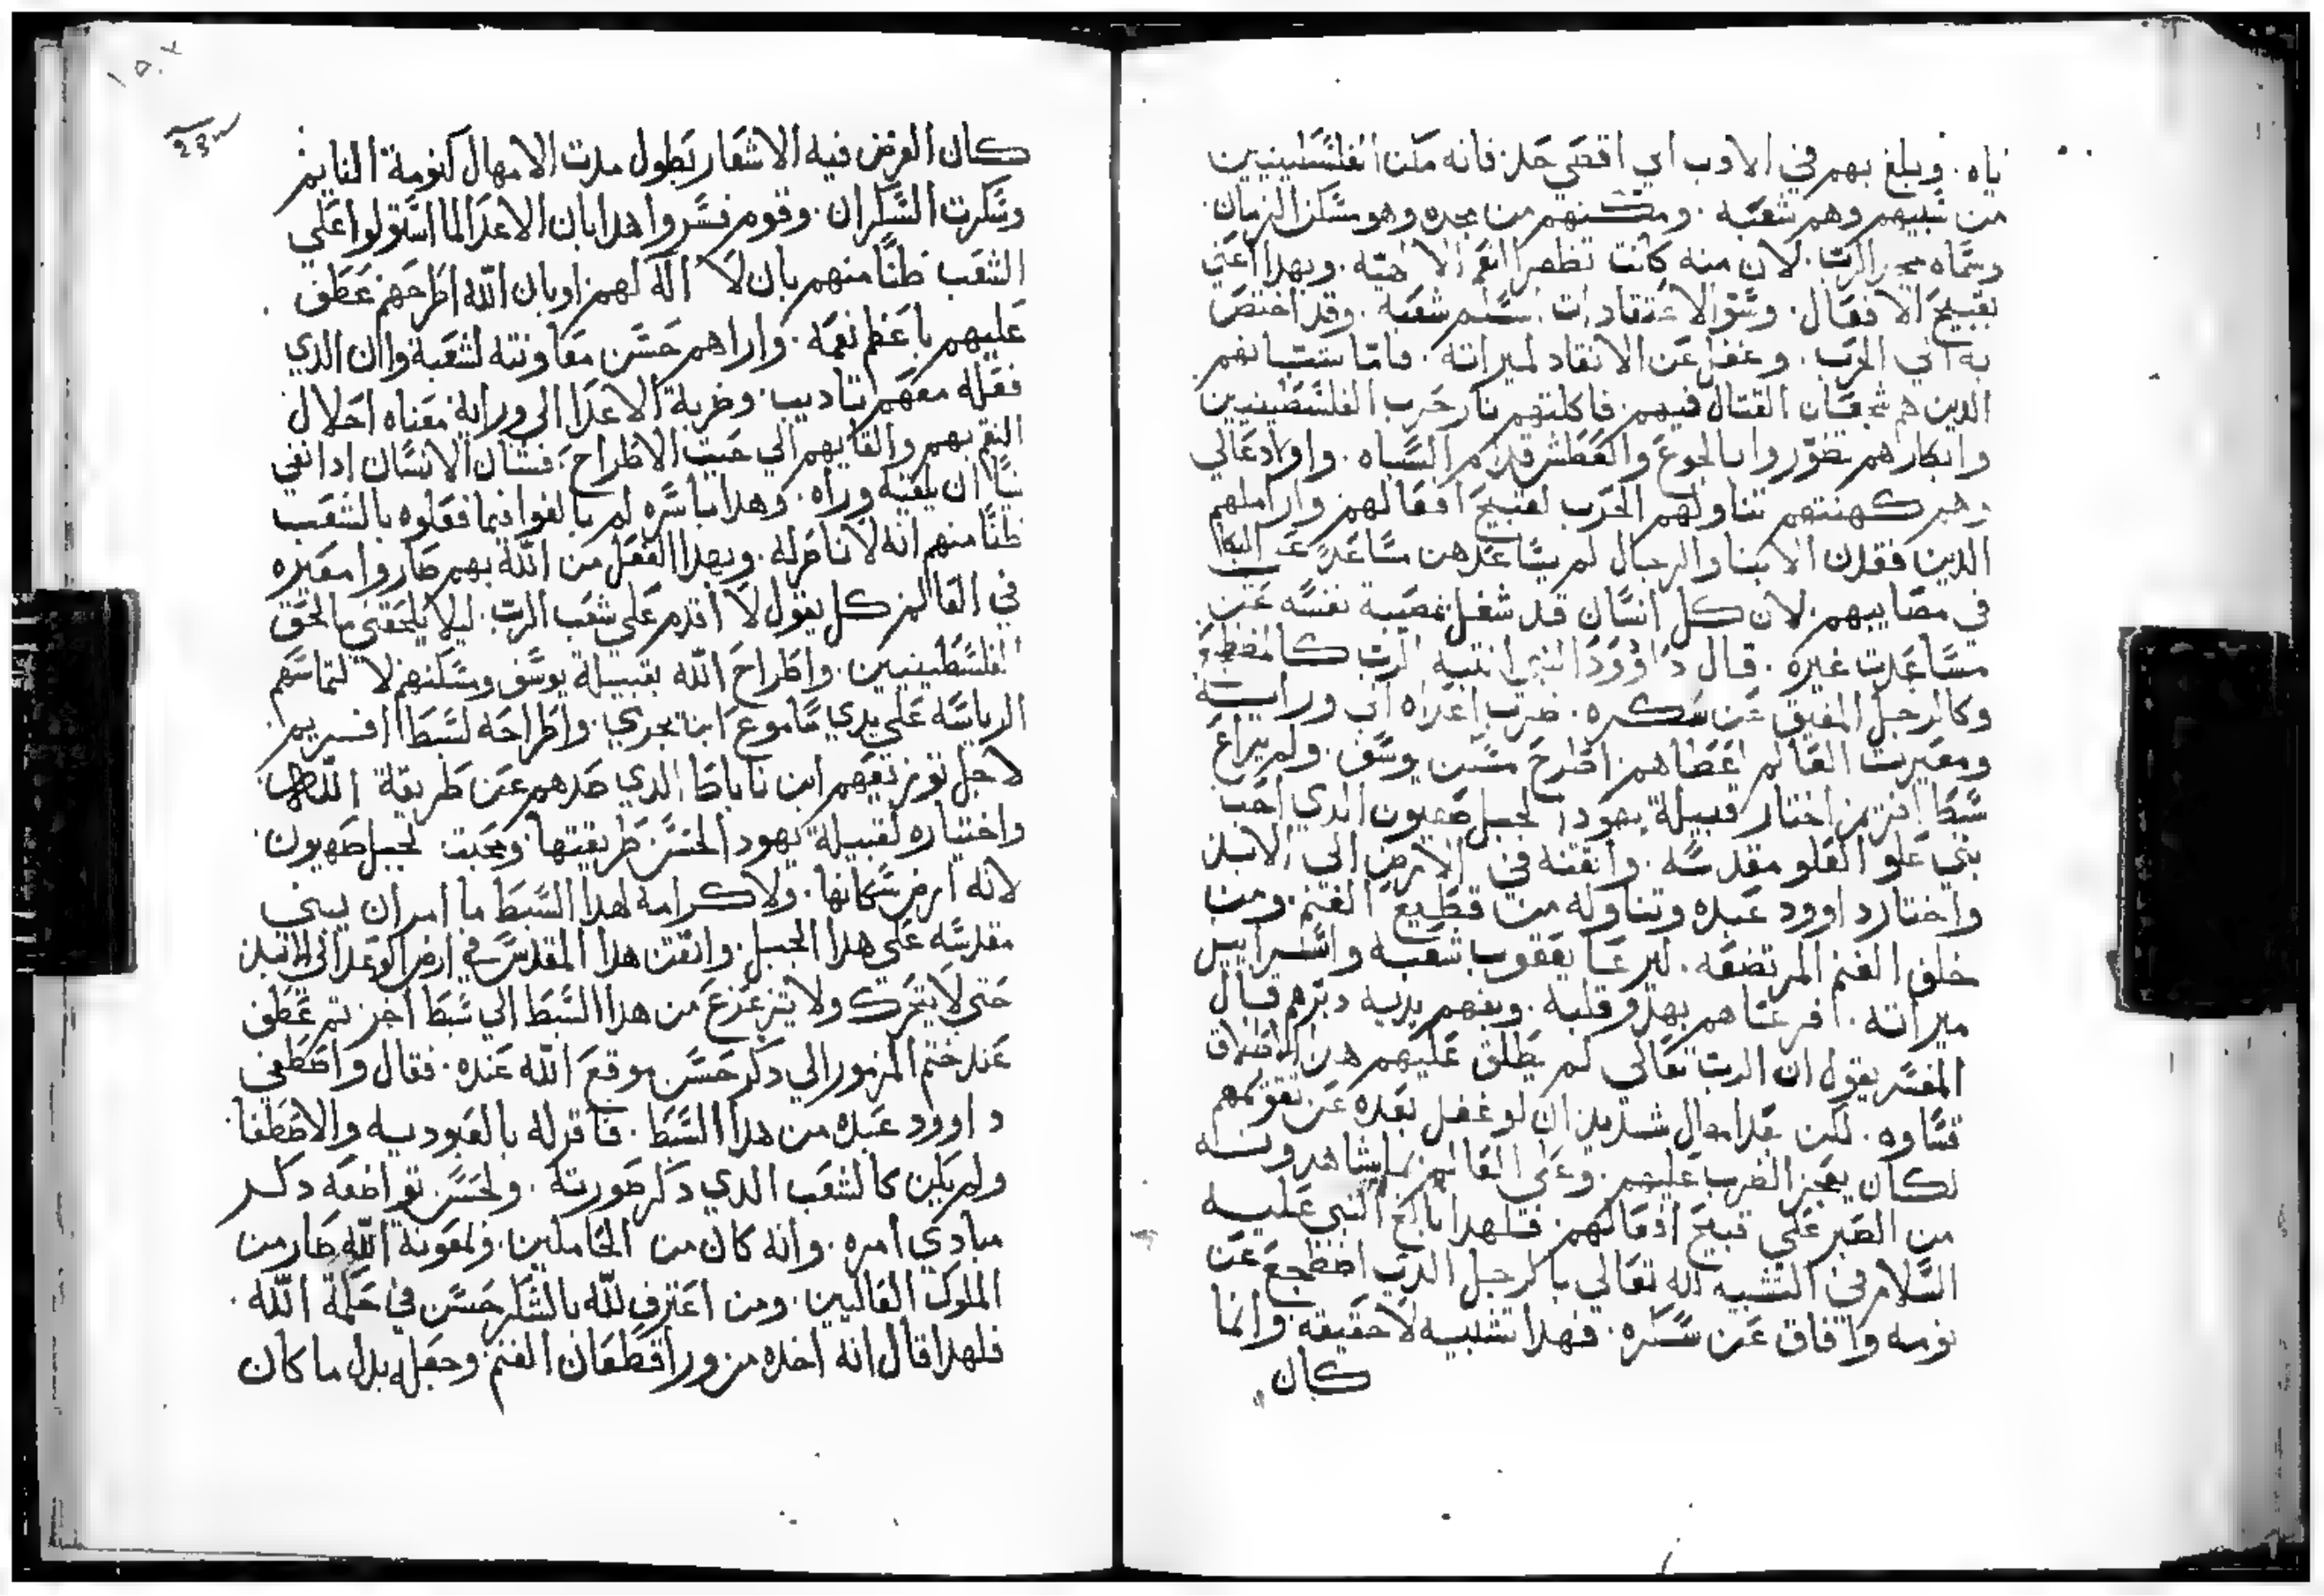 ياه. وبلغ بهم في الادب الي اقصي حد فانه مكن الفلسطينيين
من سبيهم وهم شعبه. ومكنهم من مجده وهو مسكن الزمان.
وسماه مجد الرب. لان منه كانت تظهر انعم الاهيه. وبهدا اعني
تقبيح الافعال. وسو الاعتقادات اسلم شعبه. وقد اختص
به الي الحرب. وغفل عن الانقاد لميراثه. فاما شبانهم
الدين هم شجعان القتال فيهم. فاكلتهم نار حرب الفلسطينيين
وابكارهم تضوروا بالجوع والعطش قدام السباه. واولاد عالي
وهم كهنتهم تناولهم الحرب لقبيح افعالهم. واراملهم
الدين فقدن الابنا والرجال لم يساعدهن مساعد عن البكا
في مصايبهم. لان كل انسان قد شغل بمصيبة نفسه عن
مساعدت غيره. قال داوود النبي انتبه الرب كالمضطجع
وكالرجل المفيق من سكره. ضرب اعداه الي ورايه
ومعيرت العالم اعطاهم. اطرح مسكن يوسف. ولم يراع
سبط افريم. اختار قبيلة يهودا لجبل صهيون الدي احب
بني علو العلو مقدسه. واتقنه في الارض الي الابد
واختار داوود عبده وتناوله من قطيع الغنم. ومن
خلف الغنم المرتضعه. ليرعا يعقوب شعبه واسراييل
ميراثه. فرعاهم بهدو قلبه. وبفهم يديه دبرهم قال
المفسر يقول ان الرب تعالي لم يطلق عليهم هذا الاطلاق
قساوه. لكن عدا مهال شديد. ان لو غفل بعده عن تقويمهم
لكان يعجز الضرب عليهم. وعلي العالم بما يشاهدونه
من الصبر علي قبيح افعالهم. فلهدا بالغ النبي عليه
السلام في التشبيه اله تعالي بالرجل الدي اضطجع عن
نومه وافاق عن سكره. فهدا تشبيه لا حقيقه. وانما
كان
23
كان الغرض فيه الاشعار بطول مدت الامهال كنومة النايم
وسكرت السكران. وقوم فسروا هدا بان الاعدا لما استولوا علي
الشعب ظنا منهم بان لا اله لهم. او بان الله اطرحهم. عطف
عليهم باعظم نعمه. واراهم حسن معاونته لشعبة وان الدي
فعله معهم تاديب. وضربة الاعدا الي ورايه معناه احلال
النقم بهم والقايهم الي حيت الاطراح. فشان الانسان ادا نفي
شيا ان يلقيه وراه. وهدا باسره لم يبالغوا فيما فعلوه بالشعب
ظنا منهم انه لا ناصر له. وبهدا الفعل من الله بهم صاروا معيره
في العالم. كل يقول لا اقدم علي شعب الرب. ليلا يلحقني ما لحق
الفلسطينيين. واطراح الله بقبيلة يوسف ومسكنهم لا لتماسهم
الرياسه علي يدي ماموع ابن بجري. واطراحه لسبط افريم
لاجل يوربعهم ابن ناباط الدي صدهم عن طريقة الله
واختياره لقبيلة يهودا لحسن طريقتها. ومحبت لجبل صهيون.
لانه ارض سكانها. ولا كرامه لهدا السبط ما امر ان يبني
مقدسه علي هدا الجبل. واتقن هدا المقدس في ارض الموعد الي الابد
حتي لا يتحرك ولا يتزعزع من هدا السبط الي سبط اخر. تم عطف
عند ختم المزمور الي دكر حسن موقع الله عنده. فقال واصطفي
داوود عبده من هدا السبط. فاقر له بالعبوديه والاصطفا.
ولم يكن كالشعب الدي دكر صورته. ولحسن تواضعه دكر
مبادي امره. وانه كان من الخاملين. ولمعونة الله صار من
الملوك العالين. ومن اعترف لله بالشكر حسن في حكمة الله.
فلهدا قال انه اخده من ورا قطعان الغنم. وجعله بدل ما كان